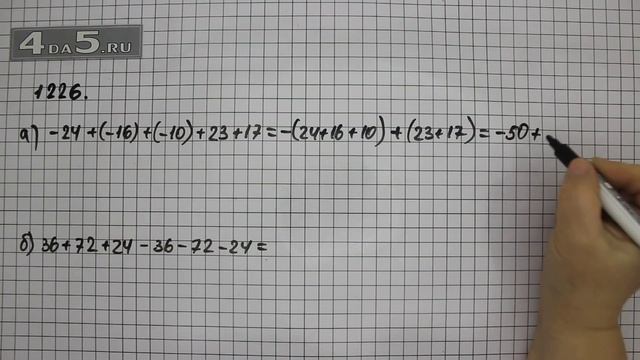 4DA5.RU
1226.
а) -24+(-16)+(-10)+23+17=-(24+16+10)+(23+17)=-50+
б) 36+72+24-36-72-24=